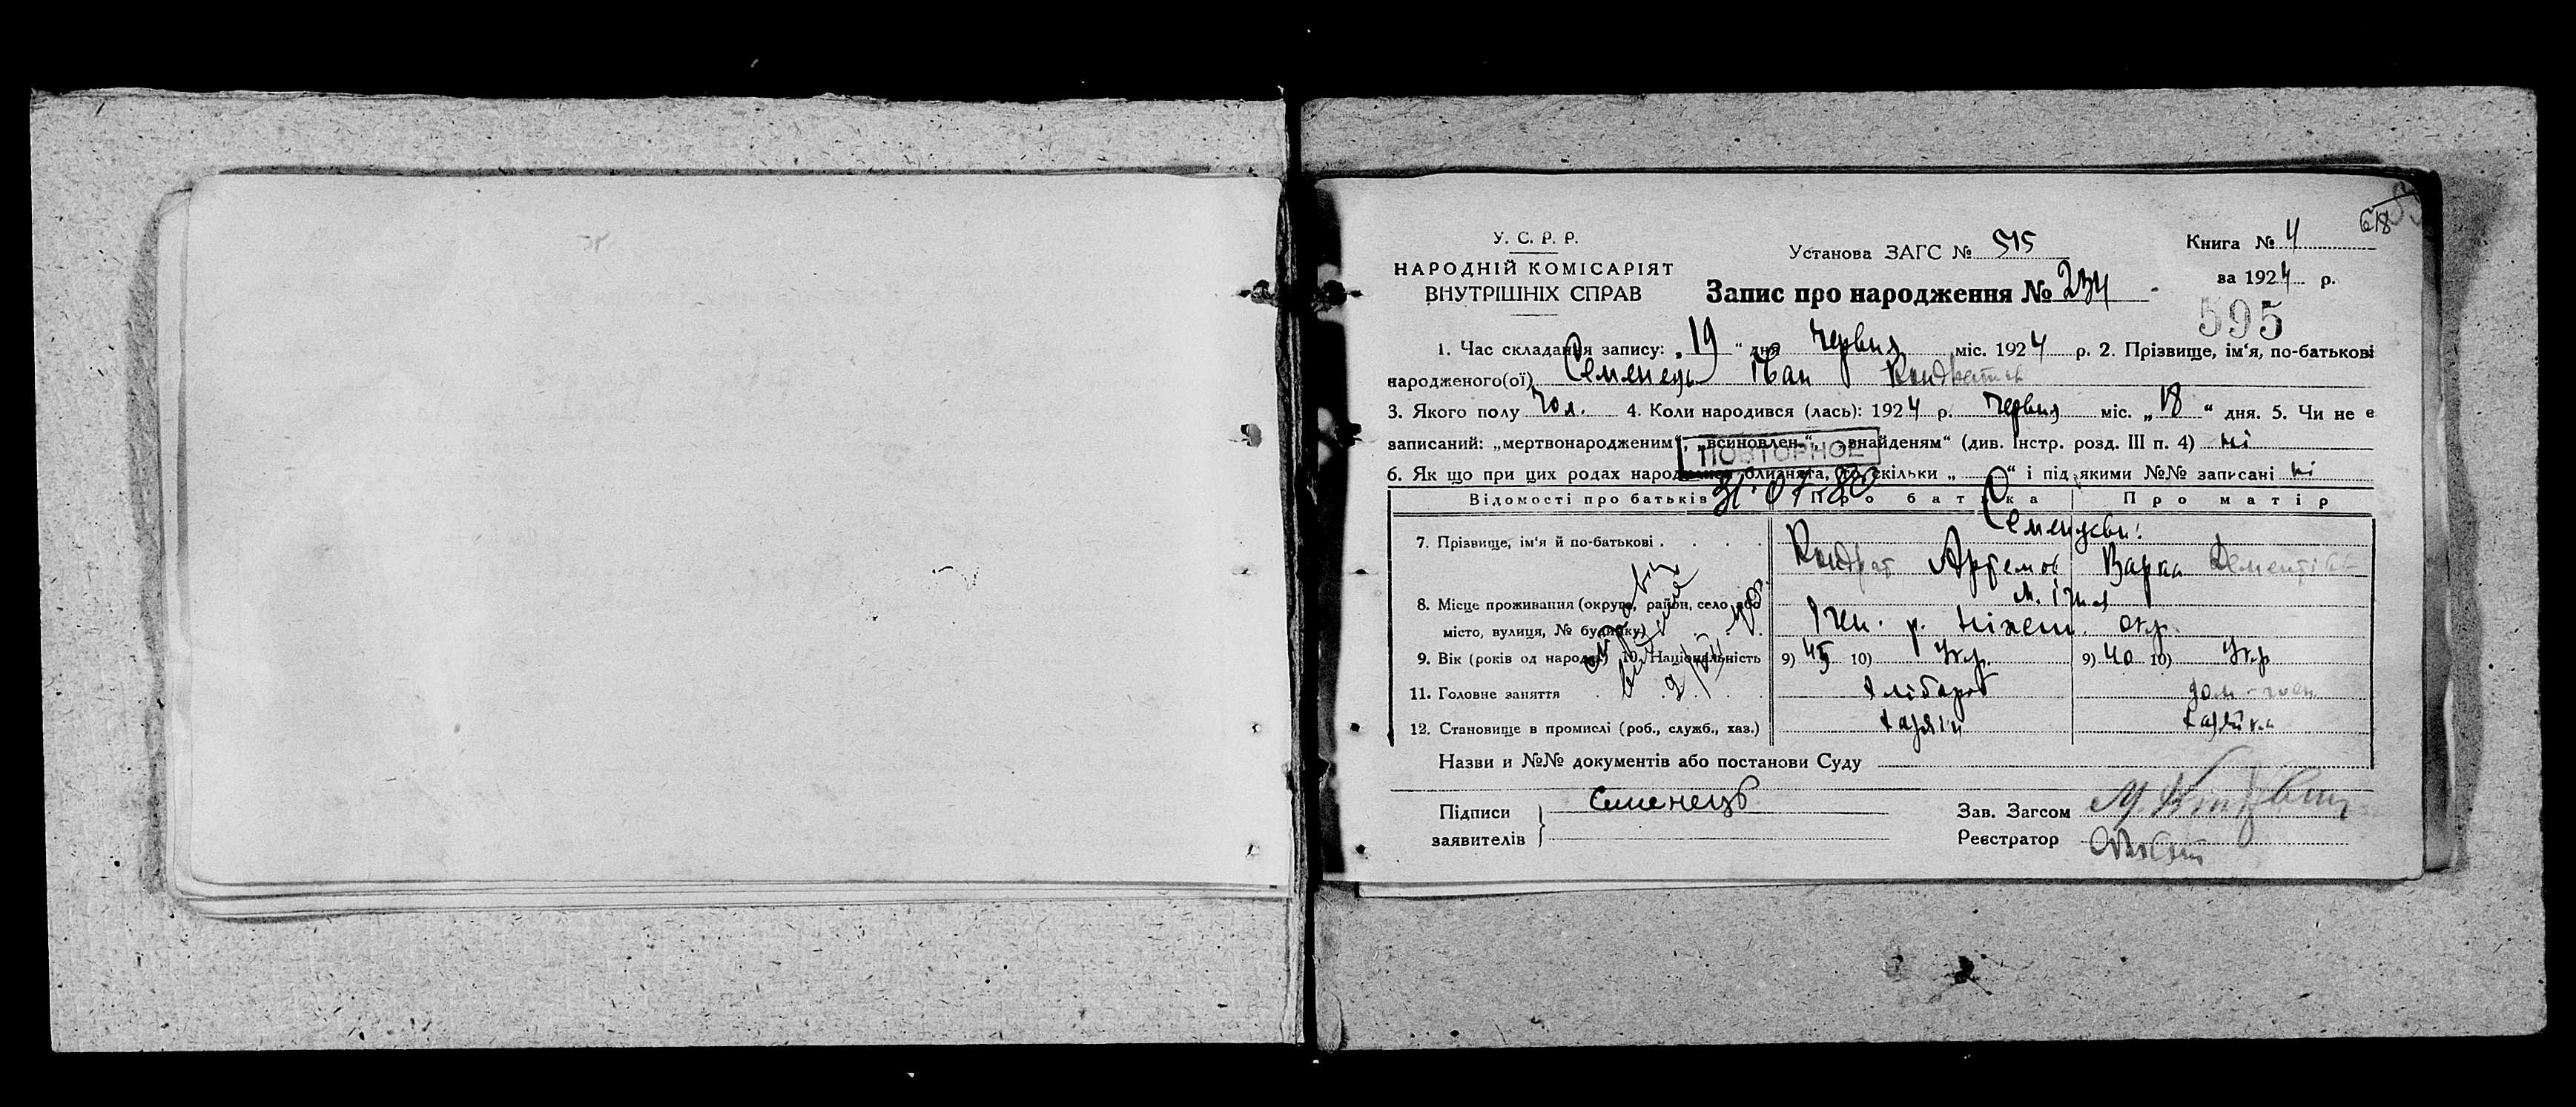 618
У. С. Р. Р.
НАРОДНІЙ КОМІСАРІЯТ
ВНУТРІШНІХ СПРАВ
Установа ЗАГС № 515
Книга № 4
за 1924 р.
Запис про народження № 234
595
1. Час складання запису: „19“ дня червня міс. 1924 р. 2. Прізвище, ім‘я, по-батькові
народженого(ої) Семенець Іван Кондратов
3. Якого полу чол. 4. Коли народився (лась): 1924 р. червня міс. „18“ дня. 5. Чи не е
записаний: „мертвонародженим“, „всиновлен.“, „знайденям“ (див. Інстр. розд. III п. 4) ні
ПОВТОРНОЕ
6. Як що при цих родах народилися близнята, то скільки „ “ і під якими №№ записані ні
31.07.80
Відомості про батьків Про батька Про матір
7. Прізвище, ім‘я й по-батькові Семенцеви:
Кондрат Артемов Варка Дементіїв
8. Місце проживання (округа, район, село або м. Ічня
місто, вулиця, № будинку) Ічен. р. Ніжен. окр.
9. Вік (років од народж.) 10. Національність 9) 45 10) Укр. 9) 40 10) Укр
11. Головне заняття хлібороб дом-
12. Становище в промислі (роб., служб., хаз.) хазяїн хазяйка
Назви и №№ документів або постанови Суду
Підписи Семенець
заявителів
Зав. Загсом
Реєстратор